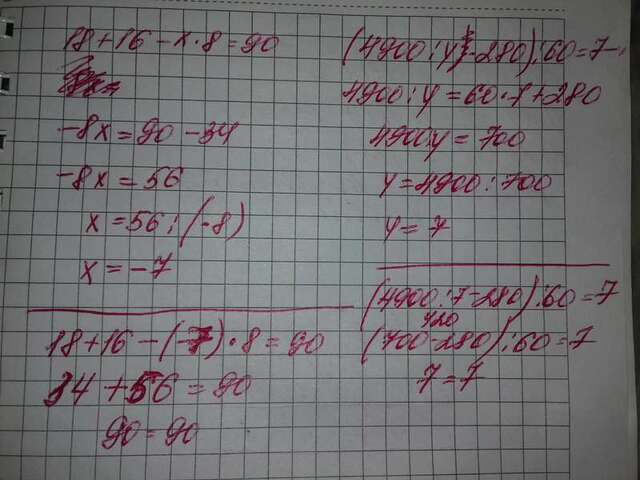 18+16-x·8=90
-8x=90-34
-8x=56
x=56:(-8)
x=-7
18+16-(-7)·8=90
34+56=90
90=90
(4900:y-280):60=7
4900:y=60·7+280
4900:y=700
y=4900:700
y=7
(4900:7-280):60=7
420
(700-280):60=7
7=7